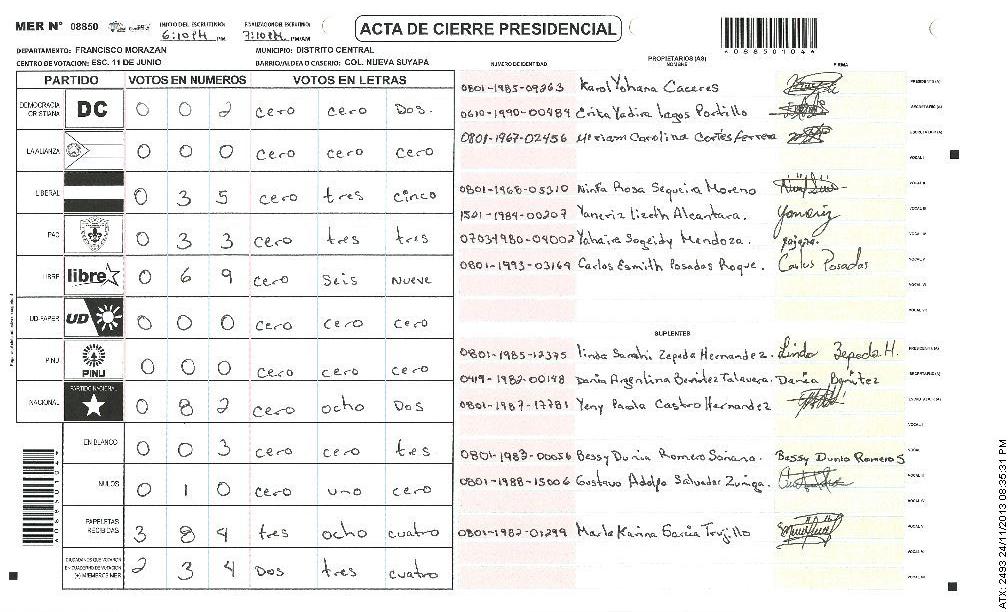 MER Nº 08850 INICIO DEL ESCRUTINIO: 6:10 PM FINALIZACION DEL ESCRUTINIO: 7:10 PM PM/AM
ACTA DE CIERRE PRESIDENCIAL
DEPARTAMENTO: FRANCISCO MORAZAN MUNICIPIO: DISTRITO CENTRAL
CENTRO DE VOTACION: ESC. 11 DE JUNIO BARRIO/ALDEA O CASERIO: COL. NUEVA SUYAPA
PARTIDO VOTOS EN NUMEROS VOTOS EN LETRAS
DEMOCRACIA CRISTIANA DC 0 0 2 cero cero Dos.
LA ALIANZA 0 0 0 cero cero cero
LIBERAL 0 3 5 cero tres cinco
PAC 0 3 3 cero tres tres
LIBRE libre 0 6 9 cero Seis Nueve
UD-FAPER UD 0 0 0 cero cero cero
PINU PINU 0 0 0 cero cero cero
NACIONAL PARTIDO NACIONAL 0 8 2 cero ocho Dos
EN BLANCO 0 0 3 cero cero tres
NULOS 0 1 0 cero uno cero
PAPELETAS RECIBIDAS 3 8 4 tres ocho cuatro
CIUDADANOS QUE VOTARON EN CUADERNO DE VOTACION (+) MIEMBROS MER 2 3 4 Dos tres cuatro
PROPIETARIOS (AS)
NUMERO DE IDENTIDAD NOMBRE FIRMA
0801-1985-09263 Karol Yohana Caceres PRESIDENTE(A)
0610-1990-00484 Erika Yadira Lagos Portillo SECRETARIO (A)
0801-1967-02456 Miriam Carolina Cortes ferrera ESCRUTADOR (A)
VOCAL I
0801-1968-05310 Ninfa Rosa Sequeira Moreno VOCAL II
1501-1984-00207 Yaneriz lizeth Alcantara. Yaneriz VOCAL III
07034980-04002 Yahaira Sogeidy Mendoza. VOCAL IV
0801-1993-03169 Carlos Esmith Posadas Roque. Carlos Posadas VOCAL V
VOCAL VI
VOCAL VII
SUPLENTES
0801-1985-12375 linda Sarahi Zepeda Hernandez. Linda Zepeda H. PRESIDENTE(A)
0419-1982-00148 Dania Argentina Benitez Talavera. Dania Benitez SECRETARIO (A)
0801-1987-17781 Yeny Paola Castro Hernandez ESCRUTADOR (A)
VOCAL I
0801-1983-00056 Bessy Dunia Romero Soriano. Bessy Dunia Romero S VOCAL
0801-1988-15006 Gustavo Adolfo Salvador Zuniga.
0801-1982-01299 Marla Karina Garcia Trujillo VOCAL V
4088501044
ATX: 2493 24/11/2013 08:35:31 PM